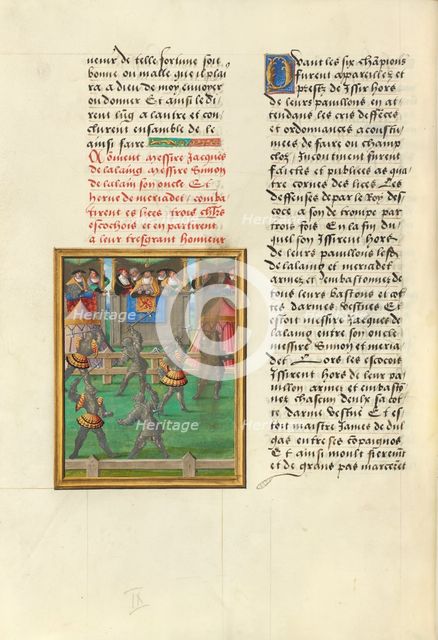 neur de telle fortune soit
bonne ou malle que il plai
ra a dieu de moy ennoyer
ou donner Et ainsi le di
rent lũg a lautre et con
clurent ensamble de le
ainsi faire
Cõment messire Jacques
de lalaing messire Simon
de lalain son oncle Et
herue de meriadet / comba
tirent es lices trois chl̃rs
escochois et en partirent
a leur tresgrant honneur
Quant les six chãpions
furent apareillez et
prestz de issir hors
de leurs pauillons en at
tendans les cris deffẽces
et ordonnances acoustu
mees de faire ou champ
cloz / Incontinent furent
faictes et publiees as qua
tre cornes des lices Les
deffenses de par le Roy des
coce a son de trompe par
trois fois En la fin du
quel son issirent hors
de leurs pauillons les
de lalaing et meriadet
armez et embastonnez de
tous leurs bastons et cot
tes darmes vestues Et es
toit messire Jacques de
lalaing entre son oncle
messire Simon et meria
det Lors les escocois
issirent hors de leur pa
uillon armez et embaston
nez chascun deulx sa cot
te darme vestue Et es
toit maistre James de du
glas entre ses cõpaignos
Et ainsi moult fierem̃t
et de grans pas marcerẽt
Heritage
Heritage
Heritage
Heritage
Heritage
IX